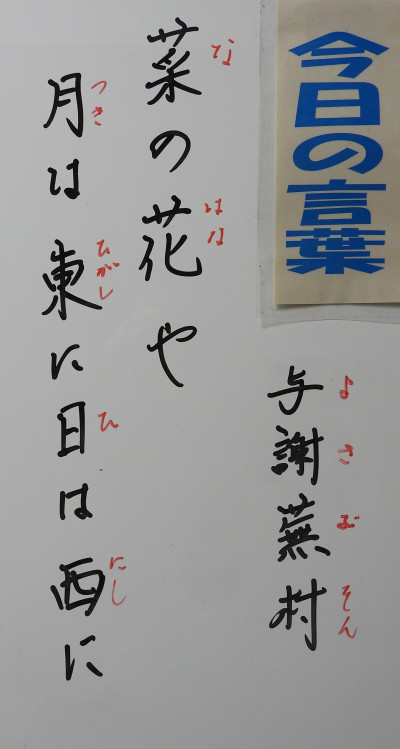 今日の言葉
与謝蕪村
よさぶそん
菜の花や
な
はな
月は東に日は西に
つき
ひがし
ひ
にし